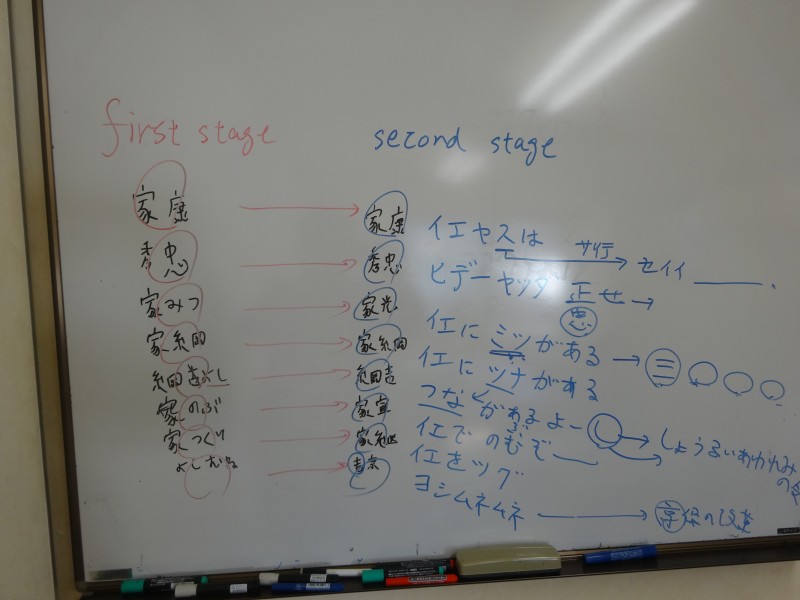 first stage
second stage
家康 → 家康 イエヤスは
秀忠 → 秀忠 ヒデーヤッダ 正せ →
セイイ
家みつ → 家光 イエにミツがある → 三
家綱 → 家綱 イエにツナがある
綱よし → 綱吉 つながあるよー
家のぶ → 家宣 イエでのむぞ
しょうるいあわれみの
家つぐ → 家継 イエをツグ
よしむね → 吉宗 ヨシムネムネ → 享保の改革